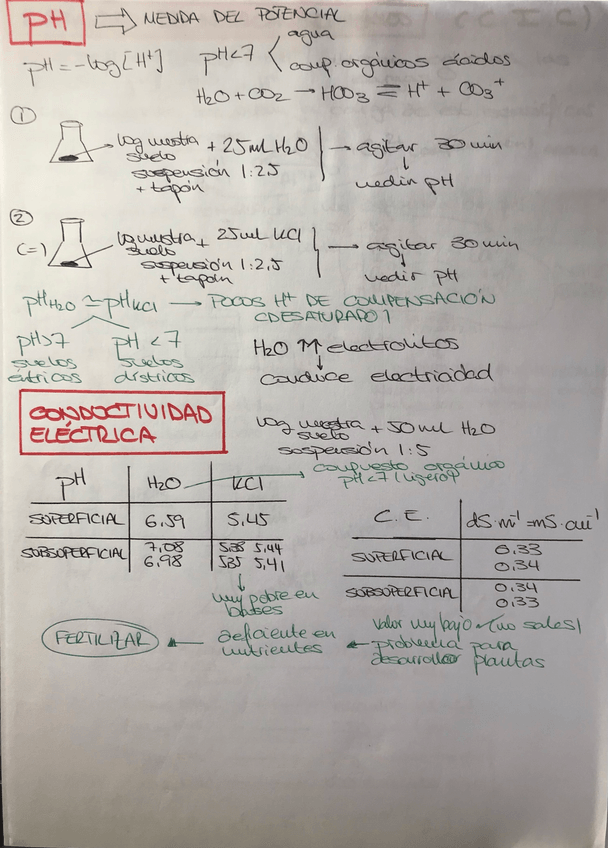 pH ⇒ MEDIDA DEL POTENCIAL
pH = -log [H⁺] pH<7 < agua
comp. orgánicos ácidos
H₂O + CO₂ → HCO₃ ⇌ H⁺ + CO₃⁺
①
10g muestra suelo + 25 mL H₂O → agitar 30 min
suspensión 1:2,5 ↓
+ tapón medir pH
②
(=) 10g muestra suelo + 25 mL KCl → agitar 30 min
suspensión 1:2,5 ↓
+ tapón medir pH
pH H₂O ≃ pH KCl → POCOS H⁺ DE COMPENSACIÓN
(DESATURADO)
pH>7 pH<7
suelos suelos
éutricos dístricos
H₂O ↑↑ electrolitos
↓
conduce electricidad
CONDUCTIVIDAD
ELÉCTRICA
10g muestra suelo + 50 mL H₂O
suspensión 1:5
pH H₂O KCl
→ compuesto orgánico
pH<7 (ligero)
SUPERFICIAL 6.59 5.45
SUBSUPERFICIAL 7,08 5.38 5.44
6.98 5.35 5,41
C.E. dS·m⁻¹ = mS·cm⁻¹
SUPERFICIAL 0.33
0.34
SUBSUPERFICIAL 0.34
0.33
↓
muy pobre en
bases
valor muy bajo (no sales)
problema para
desarrollar plantas
← deficiente en
nutrientes
← FERTILIZAR